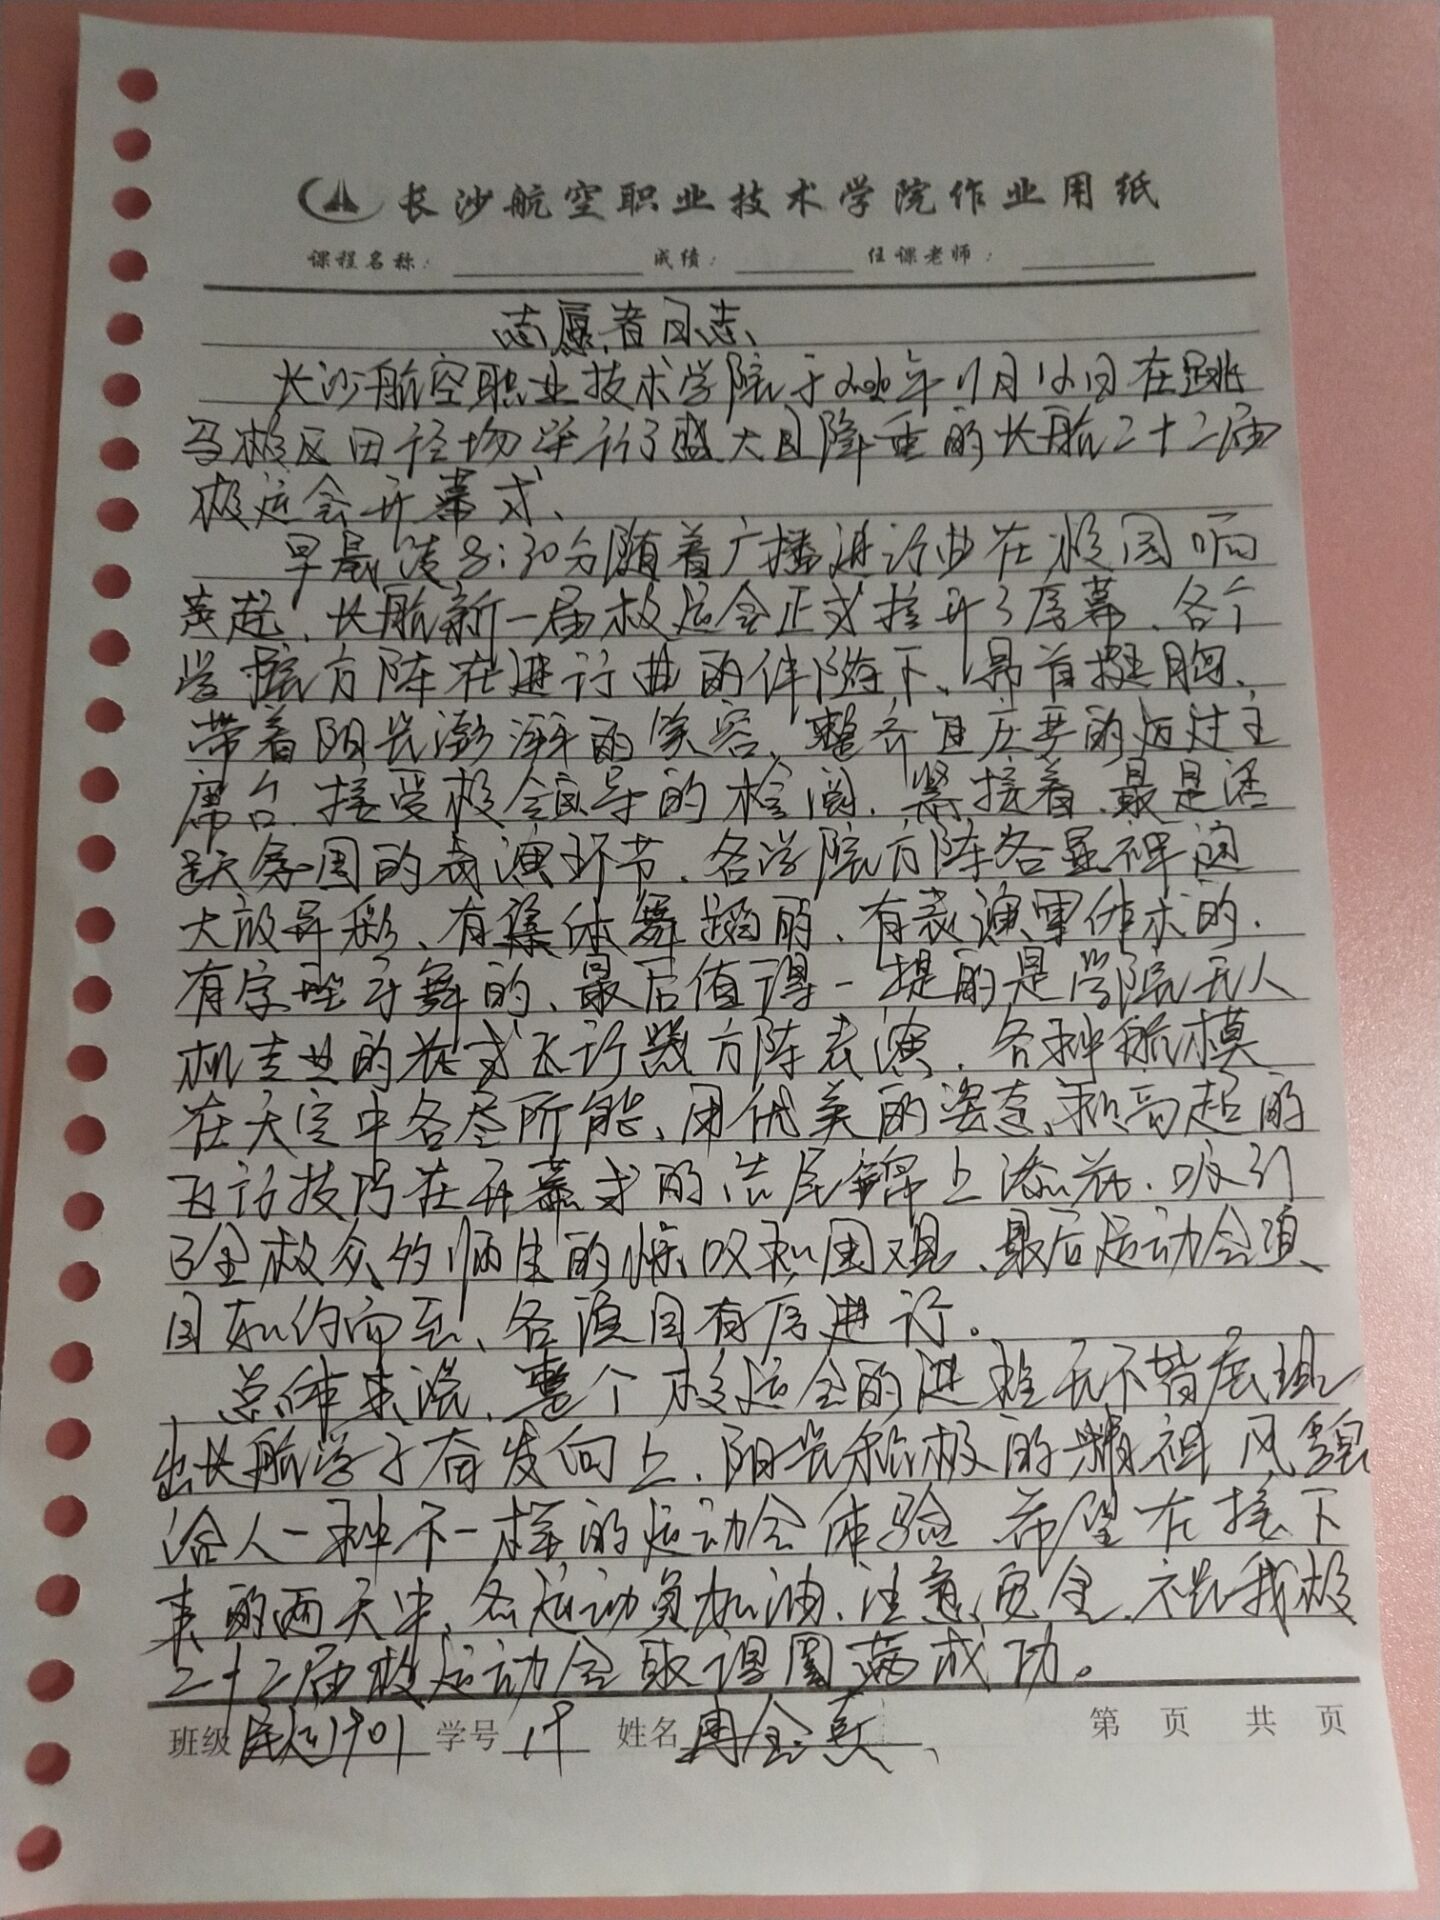 长沙航空职业技术学院作业用纸
课程名称: 成绩: 任课老师:
志愿者日志
长沙航空职业技术学院于年11月12日在跳
马校区田径场举行了盛大且隆重的长航二十二届
校运会开幕式、
早晨8:30分随着广播进行曲在校园响
起、长航新一届校运会正式拉开了序幕、各个
学院方阵在进行曲的伴随下、昂首挺胸、
带着阳光澎湃的笑容、整齐且庄严的迈过主
席台、接受校领导的检阅、紧接着、最是活
跃氛围的表演环节、各学院方阵各显神通
大放异彩、有集体舞蹈的、有表演军体术的、
有字舞的、最后值得一提的是学院无人
机专业的花式飞行器方阵表演、各种航模
在天空中各尽所能、用优美的姿态、和高超的
飞行技巧在开幕式的结尾锦上添花、吸引
了全校众多师生的惊叹和围观、最后运动会项
目如约而至、各项目有序进行。
总体来说、整个校运会的进程无不皆展现
出长航学子奋发向上、阳光积极的精神风貌
给人一种不一样的运动会体验 希望在接下
来的两天中、各运动员加油、注意安全、我校
二十二届校运动会取得圆满成功。
班级 1901 学号 19 姓名 周金英、 第 页 共 页